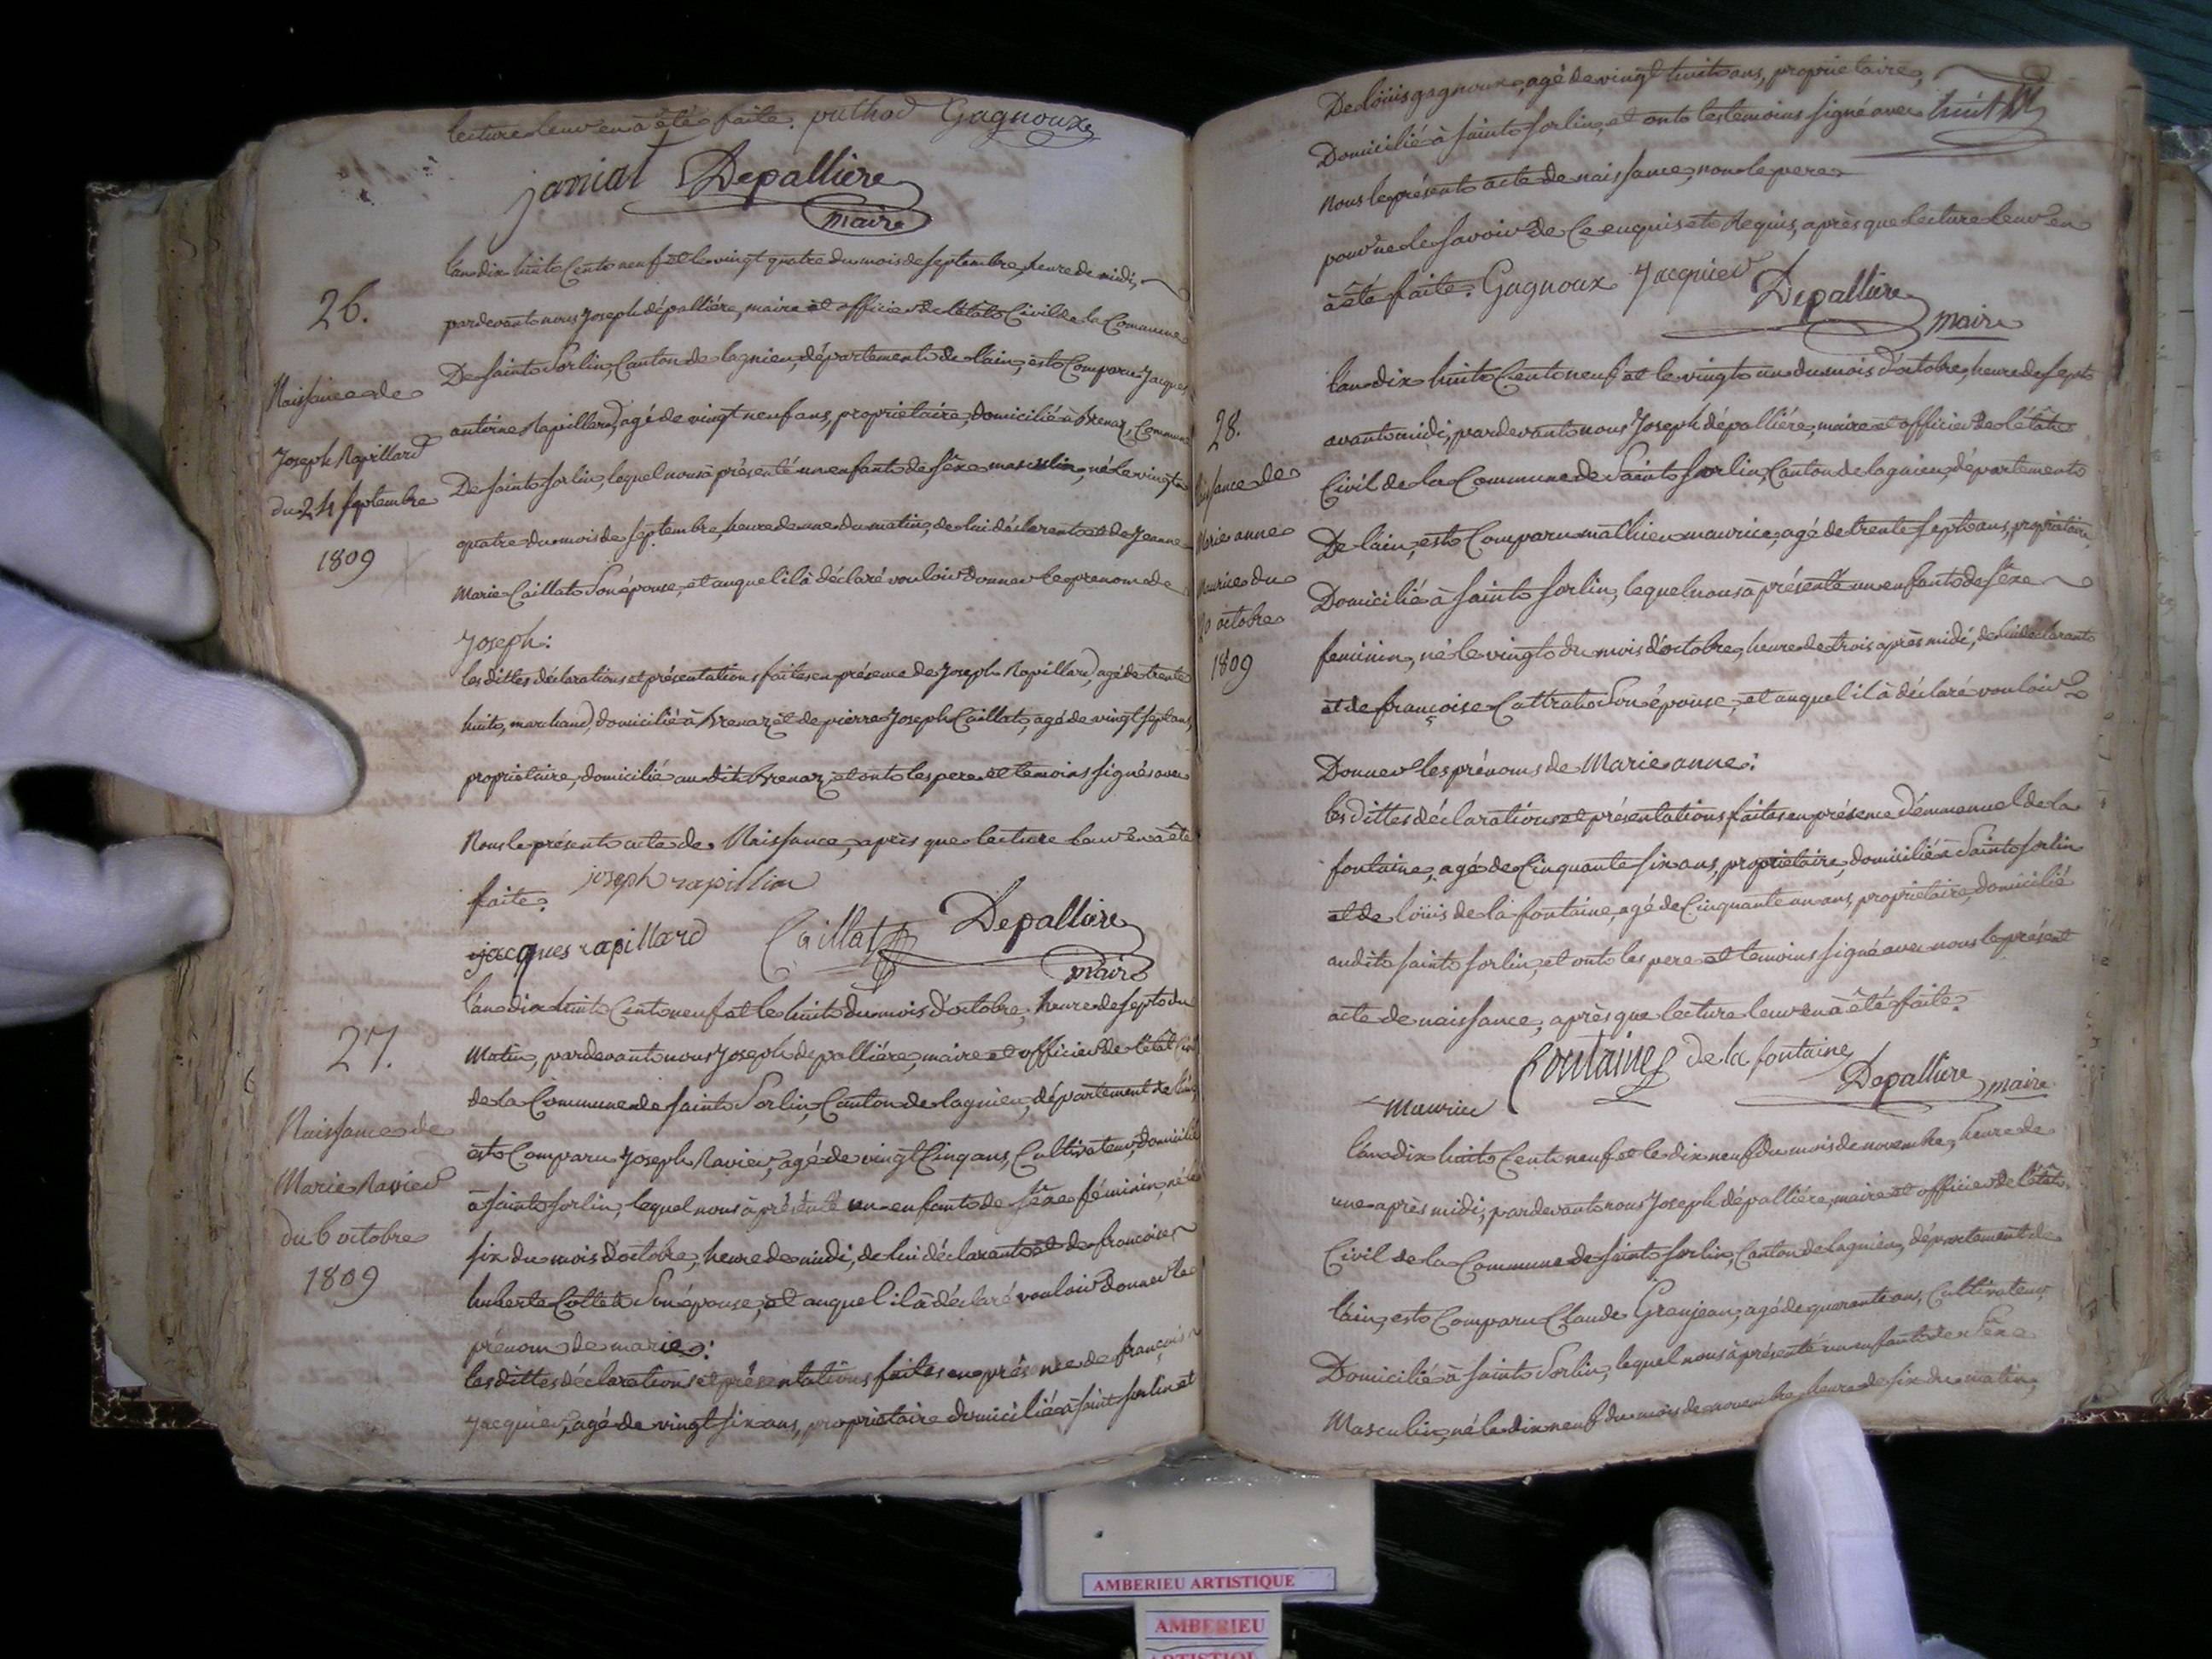 lecture leur en à été faite. puthod Gagnoux
janiat Depallière
maire
26.
Naissance de
Joseph Rapillard
du 24 septembre
1809
l'an dix huit Cent neuf et le vingt quatre du mois de septembre, heure de midi,
pardevant nous Joseph dépallière, maire et officier de l'état Civil de la Commune
De saint Sorlin, Canton de lagnieu, département de l'ain, est Comparu Jacques
antoine Rapillard, agé de vingt neuf ans, propriétaire, domicilié à Brenaz, Commune
De saint sorlin, lequel nous à présenté un enfant de sèxe masculin, né le vingt
quatre du mois de septembre, heure de une du matin, de lui déclarant et de Jeanne
Marie Caillat Son épouse, et auquel il à déclaré vouloir donner le prenom de
Joseph:
les dittes déclarations et présentations faites en présence de Joseph Rapillard, agé de trente
huit, marchand, domicilié à Brenaz et de pierre Joseph Caillat, agé de vingt sept ans,
propriétaire, domicilié au dit Brenaz, et ont les pere et temoins signés avec
Nous le présent acte de Naissance, après que lecture leur en à été
faite. joseph rapillion
jacques rapillard Caillat Depallière
maire
27.
Naissance de
Marie Ravier
du 6 octobre
1809
l'an dix huit Cent neuf et le huit du mois d'octobre, heure de sept du
Matin, pardevant nous Joseph depallière, maire et officier de l'état Civil
de la Commune de saint Sorlin, Canton de lagnieu, département de l'ain,
est Comparu Joseph Ravier, agé de vingt Cinq ans, Cultivateur, domicilié
à saint sorlin, lequel nous à présenté un enfant de sèxe féminin, né le
six du mois d'octobre, heure de midi, de lui déclarant et de francoise
huberte Collet Son épouse, et auquel il à déclaré vouloir donner le
prénom de marie:
les dittes déclarations et présentations faites en présence de françois
Jacquier, agé de vingt six ans, propriétaire domicilié à saint sorlin et
De loüis gagnoux, agé de vingt huit ans, propriétaire,
Domicilié à saint sorlin, et ont les temoins signé avec
nous le présent acte de naissance, non le pere
pour ne le savoir de Ce enquis et Requis, après que lecture leur en
à été faite. Gagnoux Jacquier Depallière
maire
28.
Naissance de
Marie anne
Maurice du
20 octobre
1809
l'an dix huit Cent neuf et le vingt un du mois d'octobre, heure de sept
avant midi, pardevant nous Joseph dépallière, maire et officier de l'état
Civil de la Commune de Saint Sorlin, Canton de lagnieu, département
De l'ain, est Comparu mathieu maurice, agé de trente sept ans, propriétaire,
Domicilié à saint sorlin, lequel nous à présenté un enfant de sèxe
feminin, né le vingt du mois d'octobre, heure de trois après midi, de lui déclarant
et de françoise Cattrat Son épouse, et auquel il à déclaré vouloir
Donner les prénoms de Marie anne:
les dittes déclarations et présentations faites en présence d'émmanuel de la
fontaine, agé de Cinquante six ans, propriétaire, domicilié à Saint sorlin
et de loüis de la fontaine, agé de Cinquante un ans, propriétaire, domicilié
audit saint sorlin, et ont les pere et temoins signé avec nous le présent
acte de naissance, après que lecture leur en à été faite.
fontaine de la fontaine
Maurice Depallière maire
l'an dix huit Cent neuf et le dix neuf du mois de novembre, heure de
une après midi, pardevant nous Joseph dépallière, maire et officier de l'état
Civil de la Commune de saint sorlin, Canton de lagnieu, département de
l'ain, est Comparu Claude Granjean, agé de quarante ans, Cultivateur
Domicilié à saint Sorlin, lequel nous à présenté un enfant de sèxe
Masculin, né le dix neuf du mois de novembre, heure de six du matin,
AMBERIEU ARTISTIQUE
AMBERIEU
ARTISTIQUE